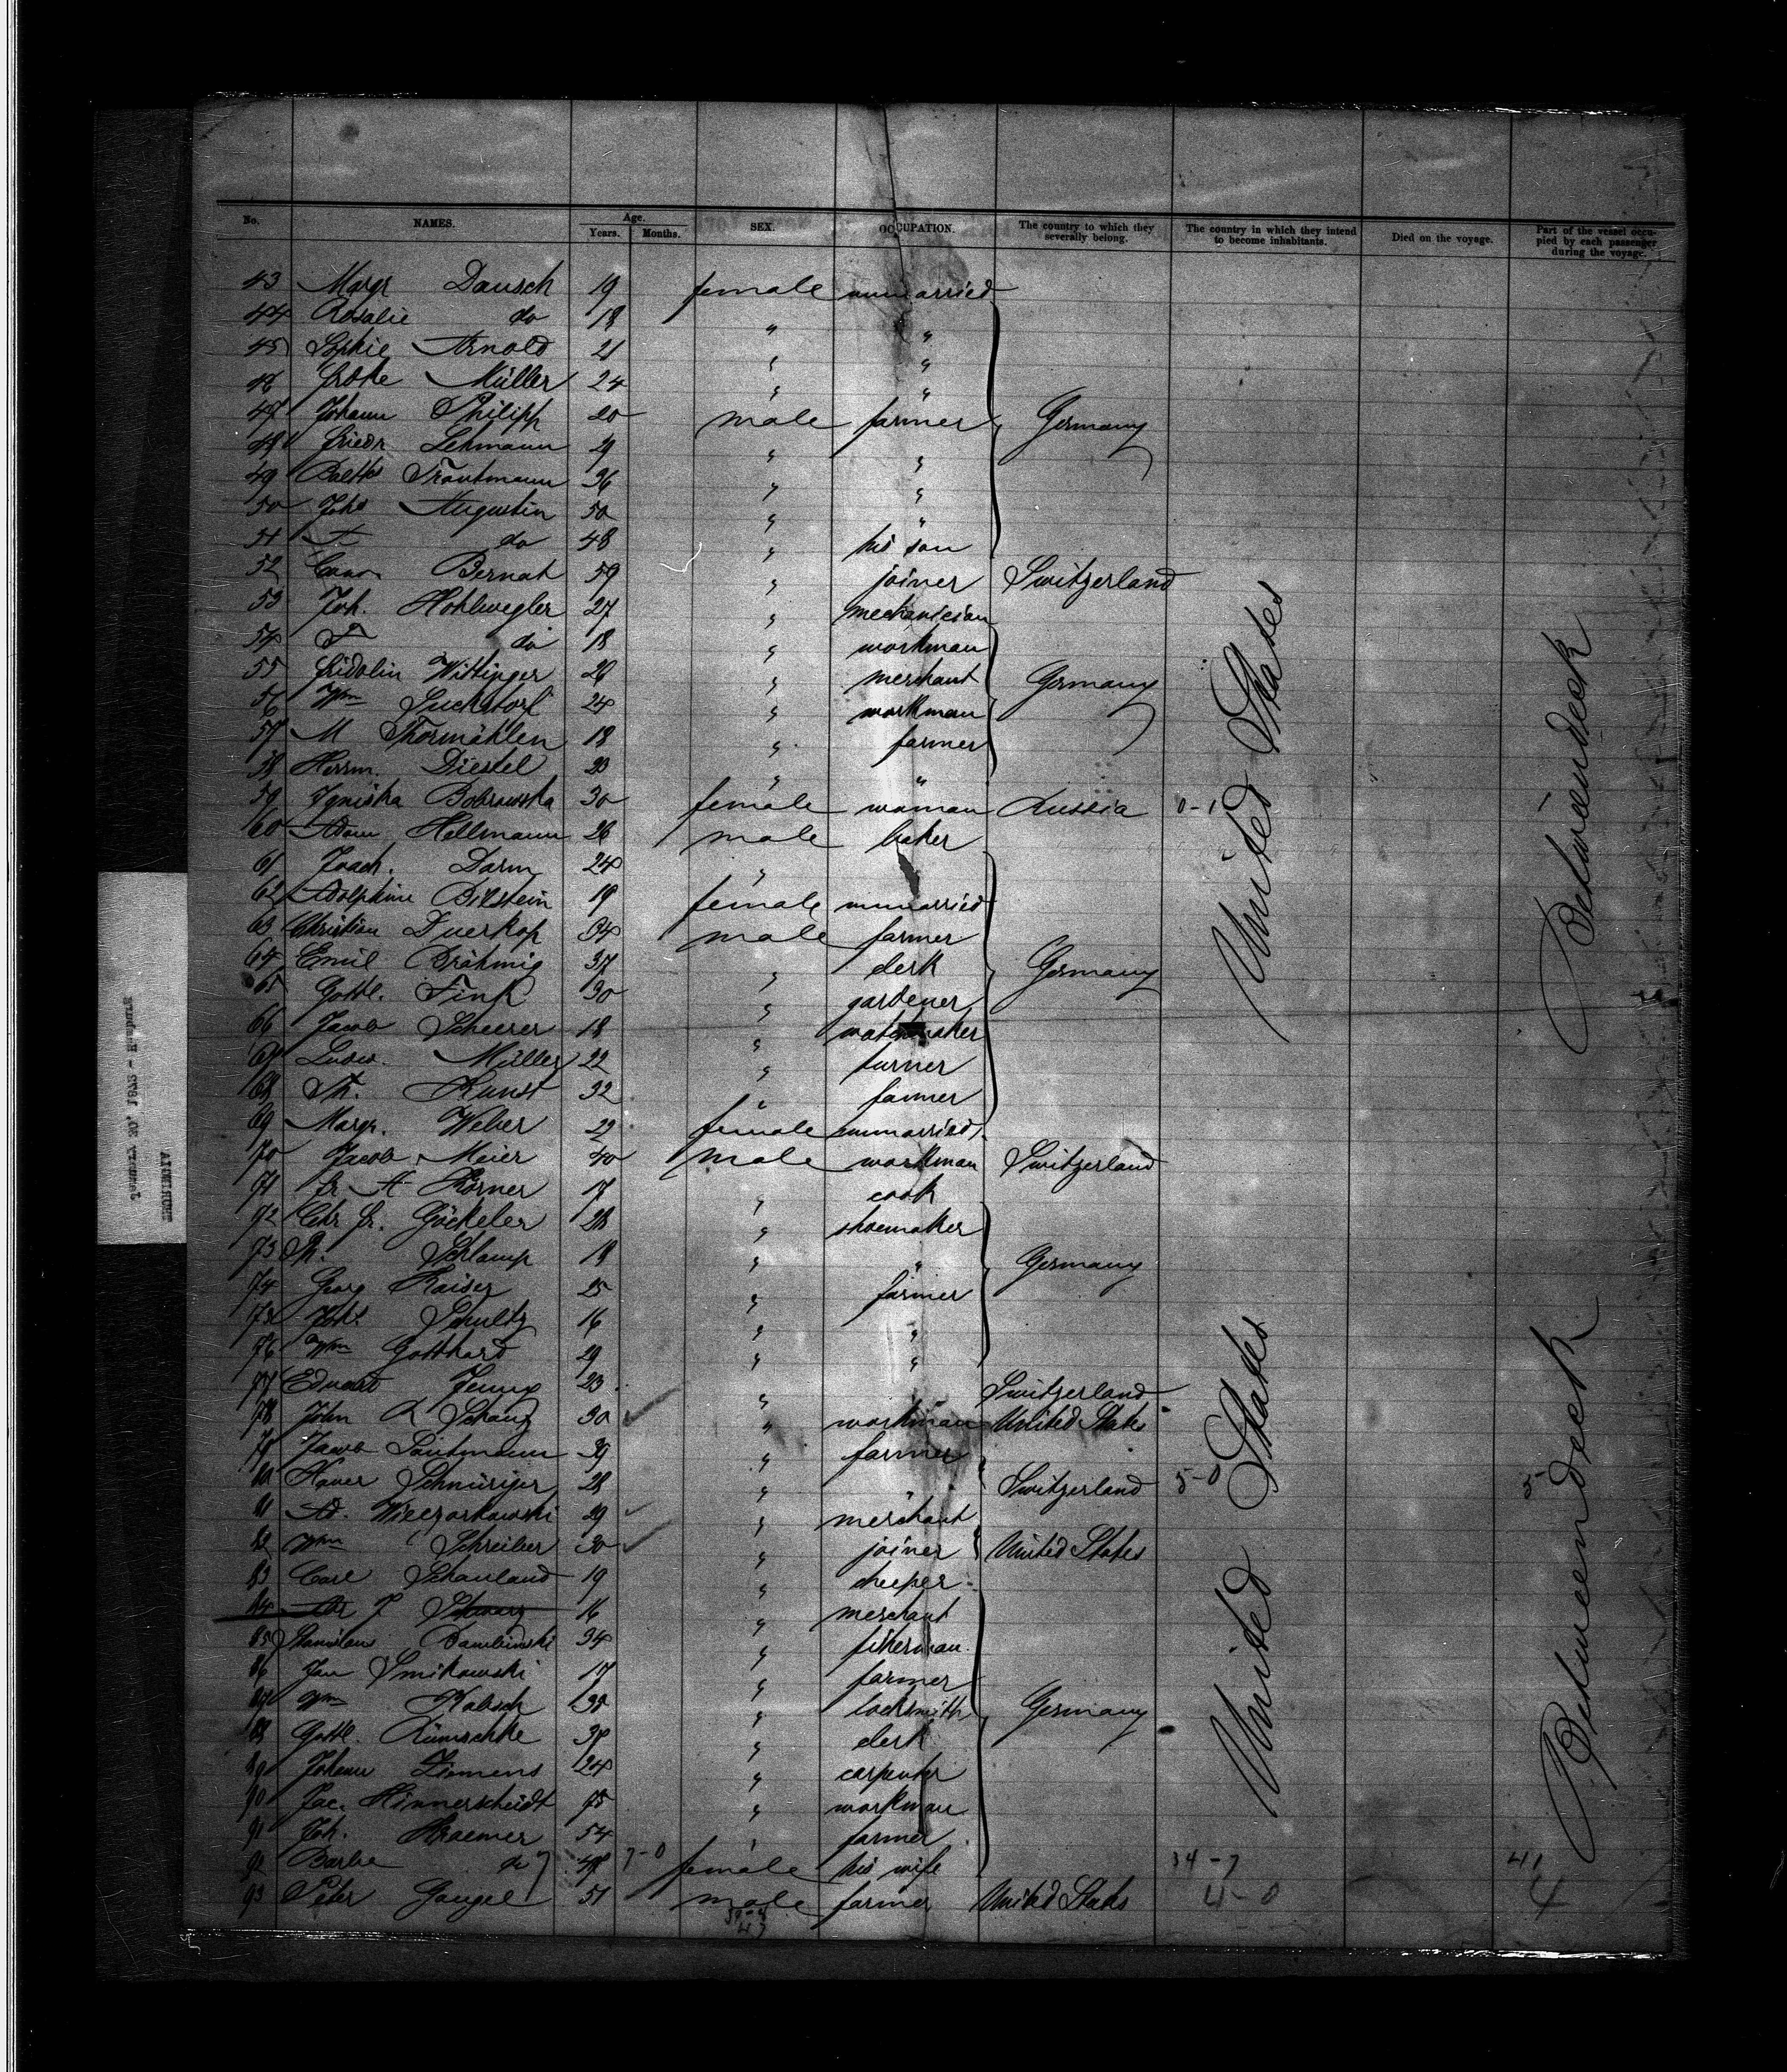 No. NAMES. Age. Years. Months. SEX. OCCUPATION. The country to which they severally belong. The country in which they intend to become inhabitants. Died on the voyage. Part of the vessel occupied by each passenger during the voyage.
43 Margr Dausch 19 female unmarried
44 Rosalie do 18 " "
45 Sophie Arnold 21 " "
46 Müller 24 " "
47 Johann Philipp 20 male farmer Germany
48 Friedr Lehmann 29 " "
49 Balth Trautmann 36 " "
50 Johs Augustin 50 " "
51 do 48 " his son
52 Bernat 59 " joiner Switzerland
53 Joh. Hohlwegler 27 " mechanician
54 F do 18 " workman
55 Fridolin Wittinger 28 " merchant Germany
56 Wm Suckstorf 24 " workman
57 M Thormählen 18 " farmer
58 Herrm. Diestel 23 " "
59 Igniska Bobrowska 30 female woman Russia 0-1
60 Adam Hellmann 26 male baker
61 Joach. Darm 24 "
62 Adolphine Bilstein 19 female unmarried
63 Christian Duerkop 34 male farmer
64 Emil Brähmig 37 " clerk Germany
65 Gottl. Fink 30 " gardener
66 Jacob Scheerer 18 " watchmaker
67 Ludw. Müller 22 " turner
68 Th. Kunst 32 " farmer
69 Margr. Weber 22 female unmarried
70 Jacob Meier 40 male workman Switzerland
71 Fr A Körner 17 " cook
72 Chr Fr. Göckeler 28 " shoemaker
73 Schlamp 18 " " Germany
74 Georg Kaiser 25 " farmer
75 Joh. Schultz 16 " "
76 Wm Gotthard 29 " "
77 Eduard Jenny 23 " Switzerland
78 John Schanz 30 " workman United States
79 Jacob Lautmann 39 " farmer
80 Xaver Schnüriger 28 " " Switzerland 5-0 5
81 Ad. Wieczorkowski 29 " merchant
82 Wm Schreiber 30 " joiner United States
83 Carl Schauland 19 "
84 J Schwarz 16 " merchant
85 Stanislaus Dambinski 34 " fisherman
86 Jan Smikowski 17 " farmer
87 Wm Kabsch 38 " locksmith Germany
88 Gottl. 38 " clerk
89 Johann Siemens 24 " carpenter
90 Jac. Hinnerscheidt " workman
91 Joh. Kraemer 54 " farmer
92 Barba do 7-0 female his wife 34-7 41
93 Peter Gangel 51 male farmer United States 4-0 4
United States
Betweendeck
United States
Betweendeck